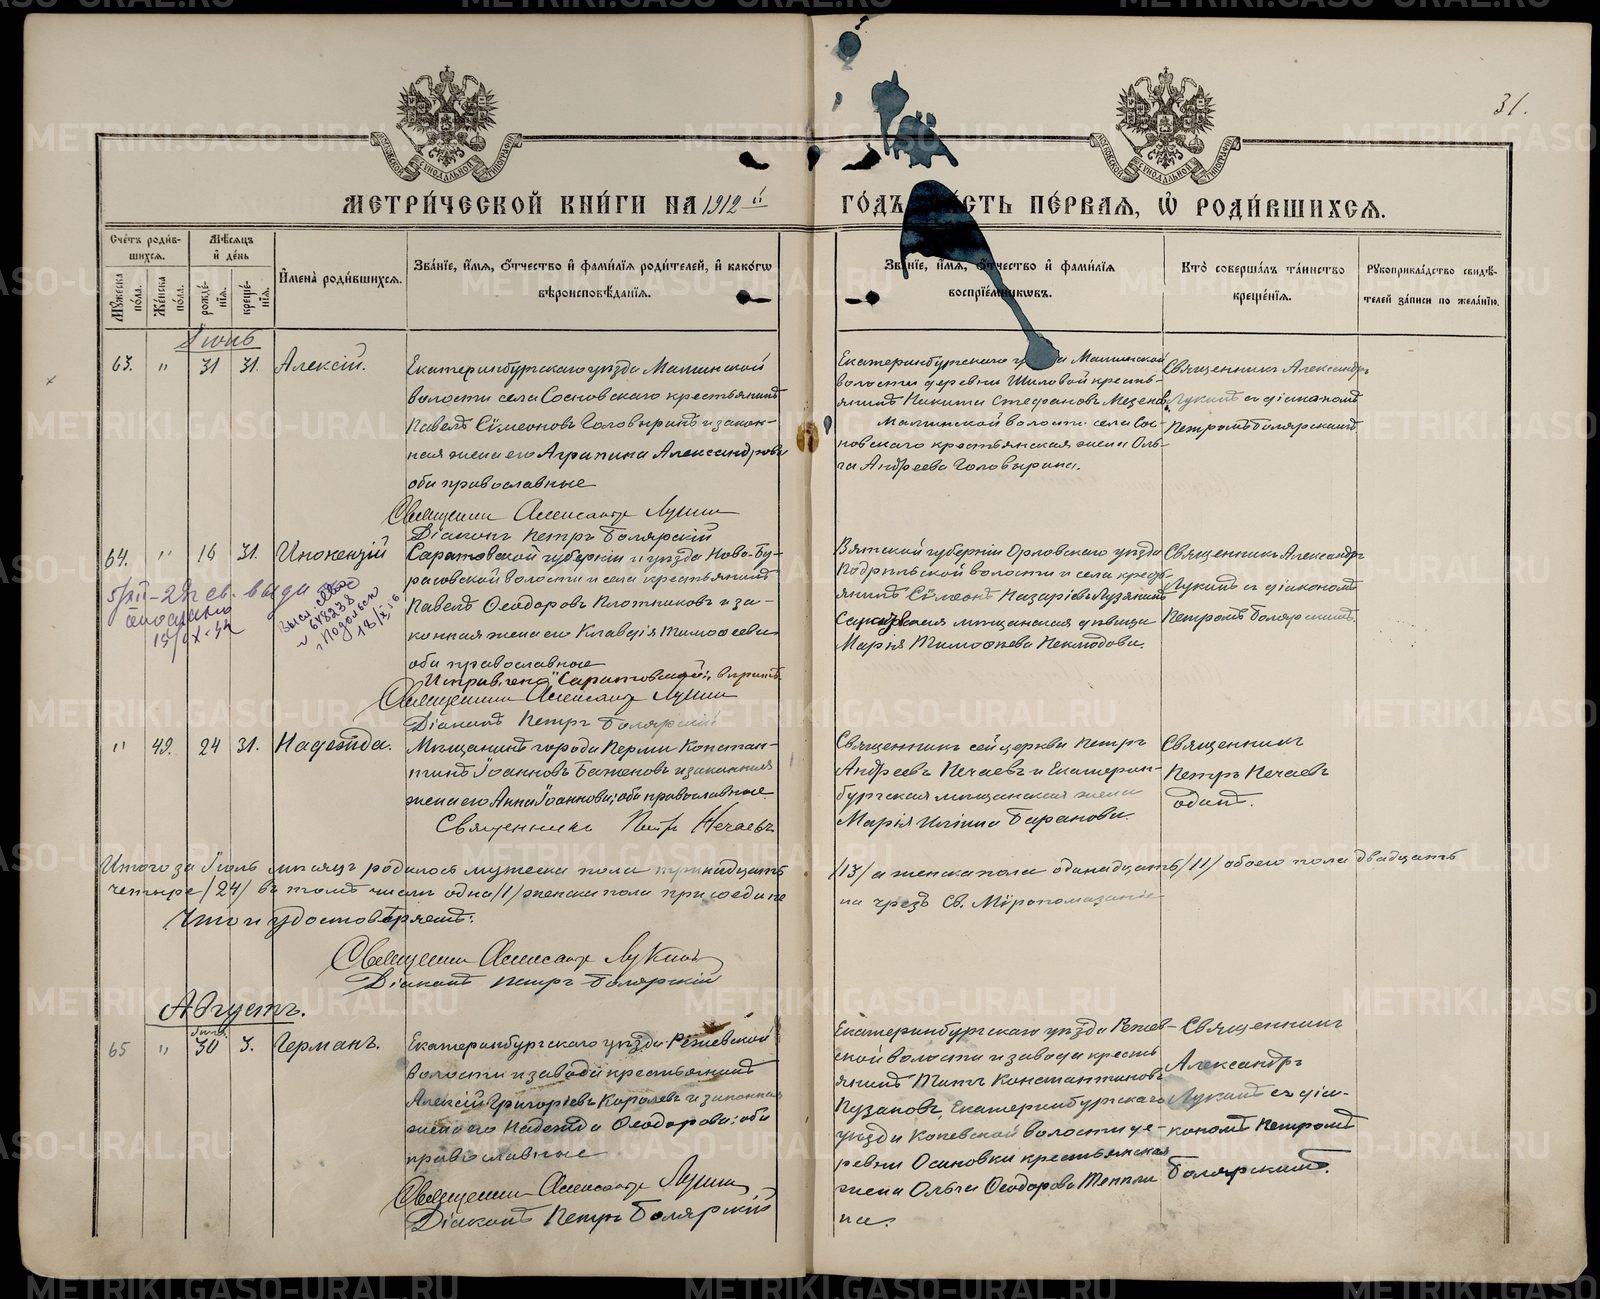 31.
МЕТРИЧЕСКОЙ КНИГИ НА 1912 й
ГОДЪ ЧАСТЬ ПЕРВАЯ, Ѡ РОДИВШИХСЯ.
Счетъ родив-
шихся.
Мужеска пола.
Женска пола.
Мѣсяцъ и день
рожде-нія.
креще-нія.
Имена родившихся.
Званіе, имя, отчество и фамилія родителей, и какогѡ
вѣроисповѣданія.
Званіе, имя, отчество и фамилія
воспріемникѡвъ.
Кто совершалъ таинство
крещенія.
Рукоприкладство свидѣ-
телей записи по желанію.
Іюль
63. " 31 31. Алексій.
Екатеринбургскаго уѣзда Маминской
волости села Сосновскаго крестьянинъ
Павелъ Сѵмеоновъ Головыринъ и закон-
ная жена его Агрипина Александрова
оба православные
Священникъ Александръ Лукинъ
Діаконъ Петръ Боярскій
Екатеринбургскаго уѣзда Маминской
волости деревни Шиловой кресть-
янинъ Никита Стефановъ Мезенов
Маминской волости села Сос-
новскаго крестьянская жена Оль-
га Андреева Головырина.
Священникъ Александръ
Лукинъ съ діакономъ
Петромъ Боярскимъ
64. " 16 31. Инокентій
Саратовской губерніи и уѣзда Ново-Бу-
расовской волости и села крестьянинъ
Павелъ Ѳеодоровъ Плотниковъ и за-
конная жена его Клавдія Тимоѳеева
оба православные
Исправлено "Саратовской", вѣрить.
Священникъ Александръ Лукинъ
Діаконъ Петръ Боярскій
Вятской губерніи Орловскаго уѣзда
волости и села кресть-
янинъ Сѵмеонъ Назаріевъ Лузянинъ
мѣщанская дѣвица
Марія Тимоѳеева Неклюдова.
Священникъ Александръ
Лукинъ съ діакономъ
Петромъ Боярскимъ.
" 42. 24 31. Надежда.
Мѣщанинъ города Перми Констан-
тинъ Іоанновъ Баженовъ и законная
жена его Анна Іоаннова; оба православные.
Священникъ Петръ Нечаевъ
Священникъ сей церкви Петръ
Андреевъ Нечаевъ и Екатерин-
бургская мѣщанская жена
Марія Ильина Баранова.
Священникъ
Петръ Нечаевъ
одинъ.
Итого за Іюль мѣсяцъ родилось мужеска пола тринадцать /13/ а женска пола одинадцать /11/ обоего пола двадцать
четыре /24/ въ томъ числѣ одна /1/ женска пола присоедине на чрезъ Св. Мѵропомазаніе
Что и удостовѣряемъ:
Священникъ Александръ Лукинъ
Діаконъ Петръ Боярскій
Августъ.
Іюль
65 " 30 3. Германъ.
Екатеринбургскаго уѣзда Режевской
волости и завода крестьянинъ
Алексій Григоріевъ Королевъ и законная
жена его Надежда Ѳеодорова; оба
православные
Священникъ Александръ Лукинъ
Діаконъ Петръ Боярскій
Екатеринбургскаго уѣзда Режев-
ской волости и завода кресть
янинъ Титъ Константиновъ
Пузановъ, Екатеринбургскаго
уѣзда Коневской волости де-
ревни Осиновки крестьянская
жена Ольга Ѳеодорова
на.
Священникъ
Александръ
Лукинъ съ діа-
кономъ Петромъ
Боярскимъ.
METRIKI.GASO-URAL.RU